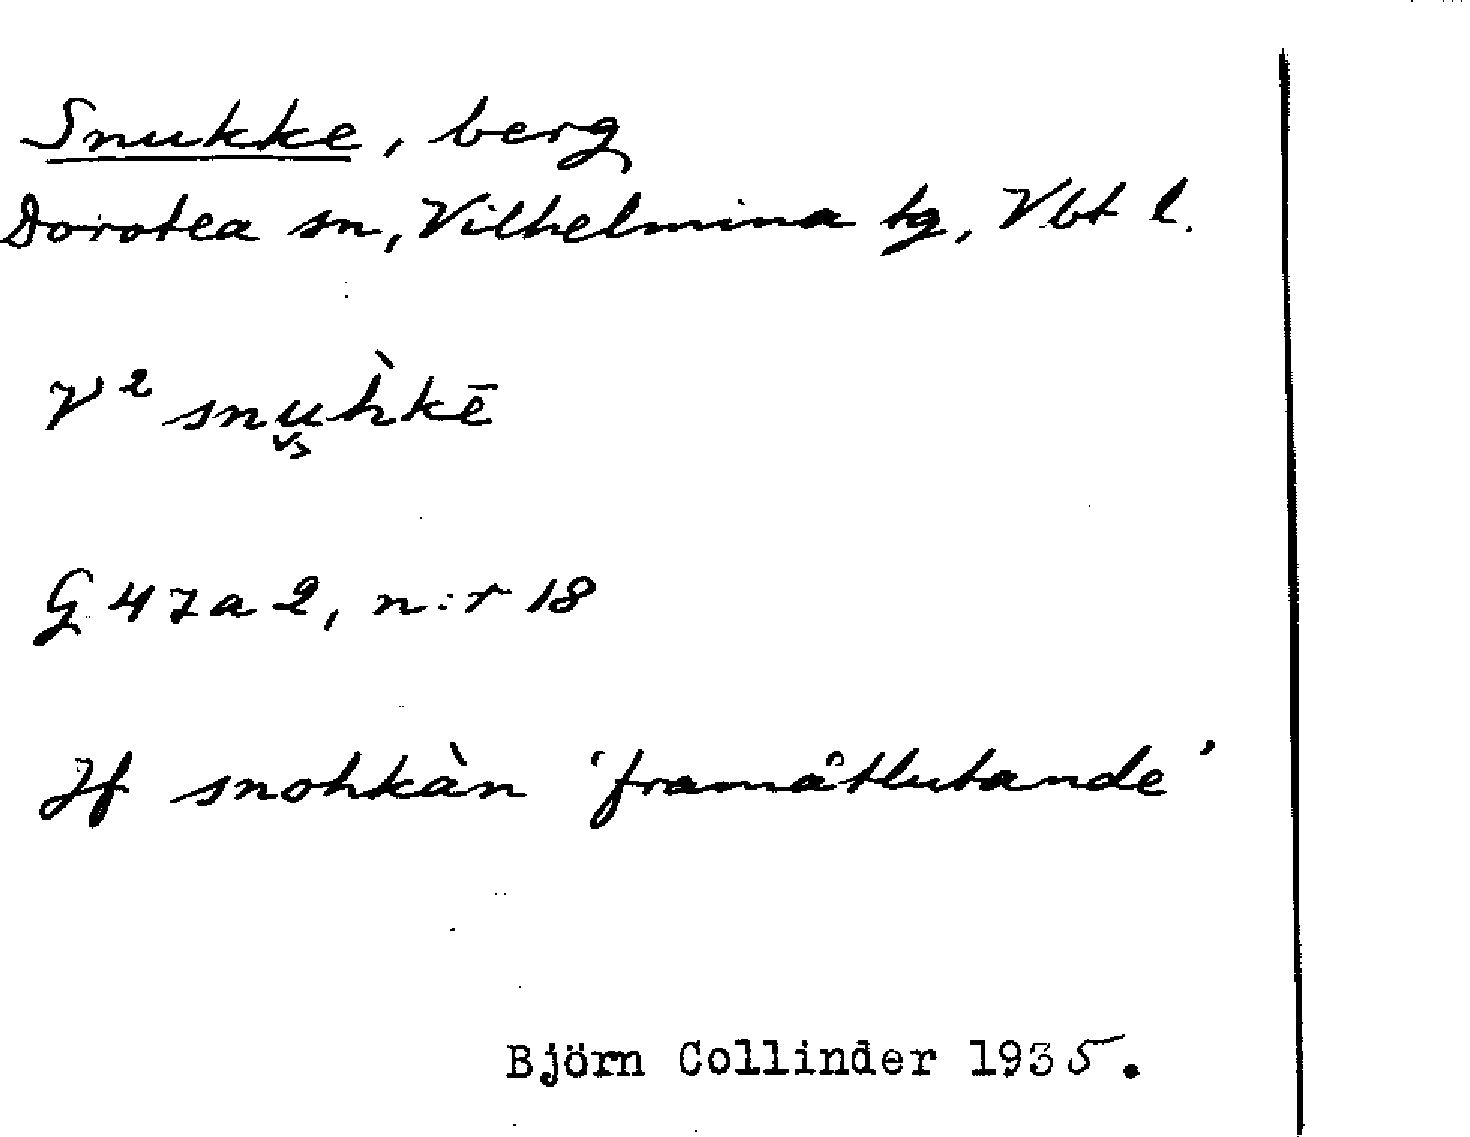 Snukke, berg
Dorotea sn, Vilhelmina tg, Vbt l.
V² snu̬h̀kē
G 47a 2, n:r 18
Jf snohkàn 'framåtlutande'
Björn Collinder 1935.